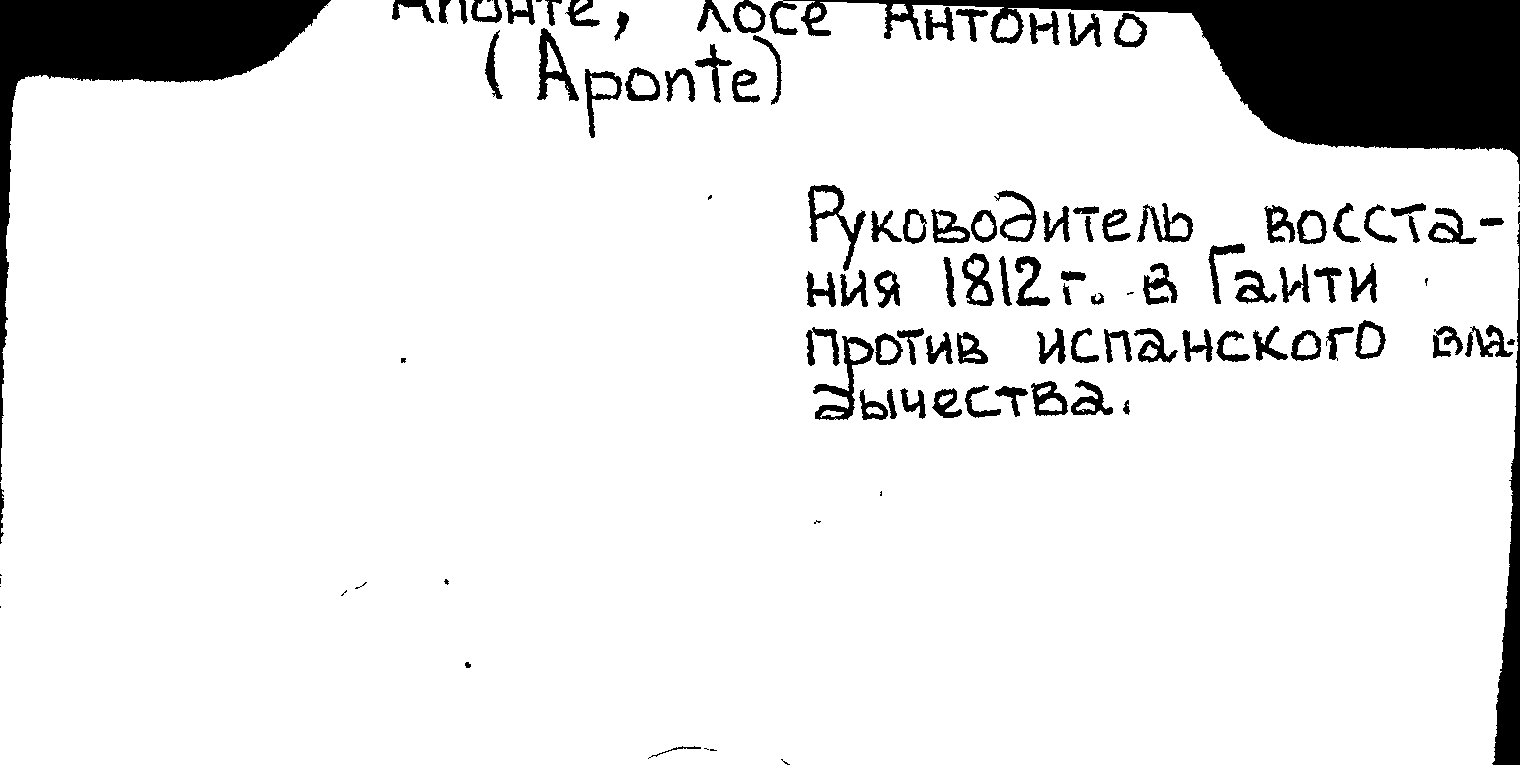 Апонте, Хосе Антонио
(Aponte)
Руководитель восста-
ния 1812 г. в Гаити
против испанского вла-
дычества.